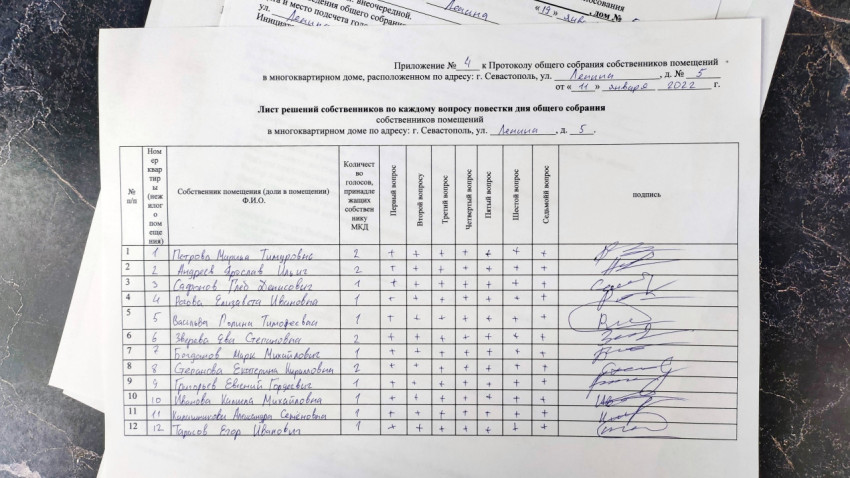 внеочередной.
и место подсчета
ведения общего собрания
ул. Ленина
Ленина
голосования
«19»
, дом №
Приложение № 4 к Протоколу общего собрания собственников помещений
в многоквартирном доме, расположенном по адресу: г. Севастополь, ул. Ленина, д. № 5
от «11» января 2022 г.
Лист решений собственников по каждому вопросу повестки дня общего собрания
собственников помещений
в многоквартирном доме по адресу: г. Севастополь, ул. Ленина, д. 5.
№ п/п
Ном ер квар тир ы (неж илог о пом еще ния)
Собственник помещения (доли в помещении) Ф.И.О.
Количест во голосов, принадле жащих собствен нику МКД
Первый вопрос
Второй вопросу
Третий вопрос
Четвертый вопрос
Пятый вопрос
Шестой вопрос
Седьмойй вопрос
подпись
1 1 Петрова Марина Тимуровна 2 + + + + + + +
2 2 Андреев Ярослав Ильич 2 + + + + + + +
3 3 Сафонов Глеб Денисович 1 + + + + + + +
4 4 Рогова Елизавета Ивановна 1 + + + + + + +
5 5 Васильева Полина Тимофеевна 1 + + + + + + +
6 6 Зверева Ева Степановна 2 + + + + + + +
7 7 Богданов Марк Михайлович 1 + + + + + + +
8 8 Степанова Екатерина Кирилловна 2 + + + + + + +
9 9 Григорьев Евгений Гордеевич 1 + + + + + + +
10 10 Иванова Камила Михайловна 1 + + + + + + +
11 11 Александра Семёновна 1 + + + + + + +
12 12 Тарасов Егор Иванович 1 + + + + + + +